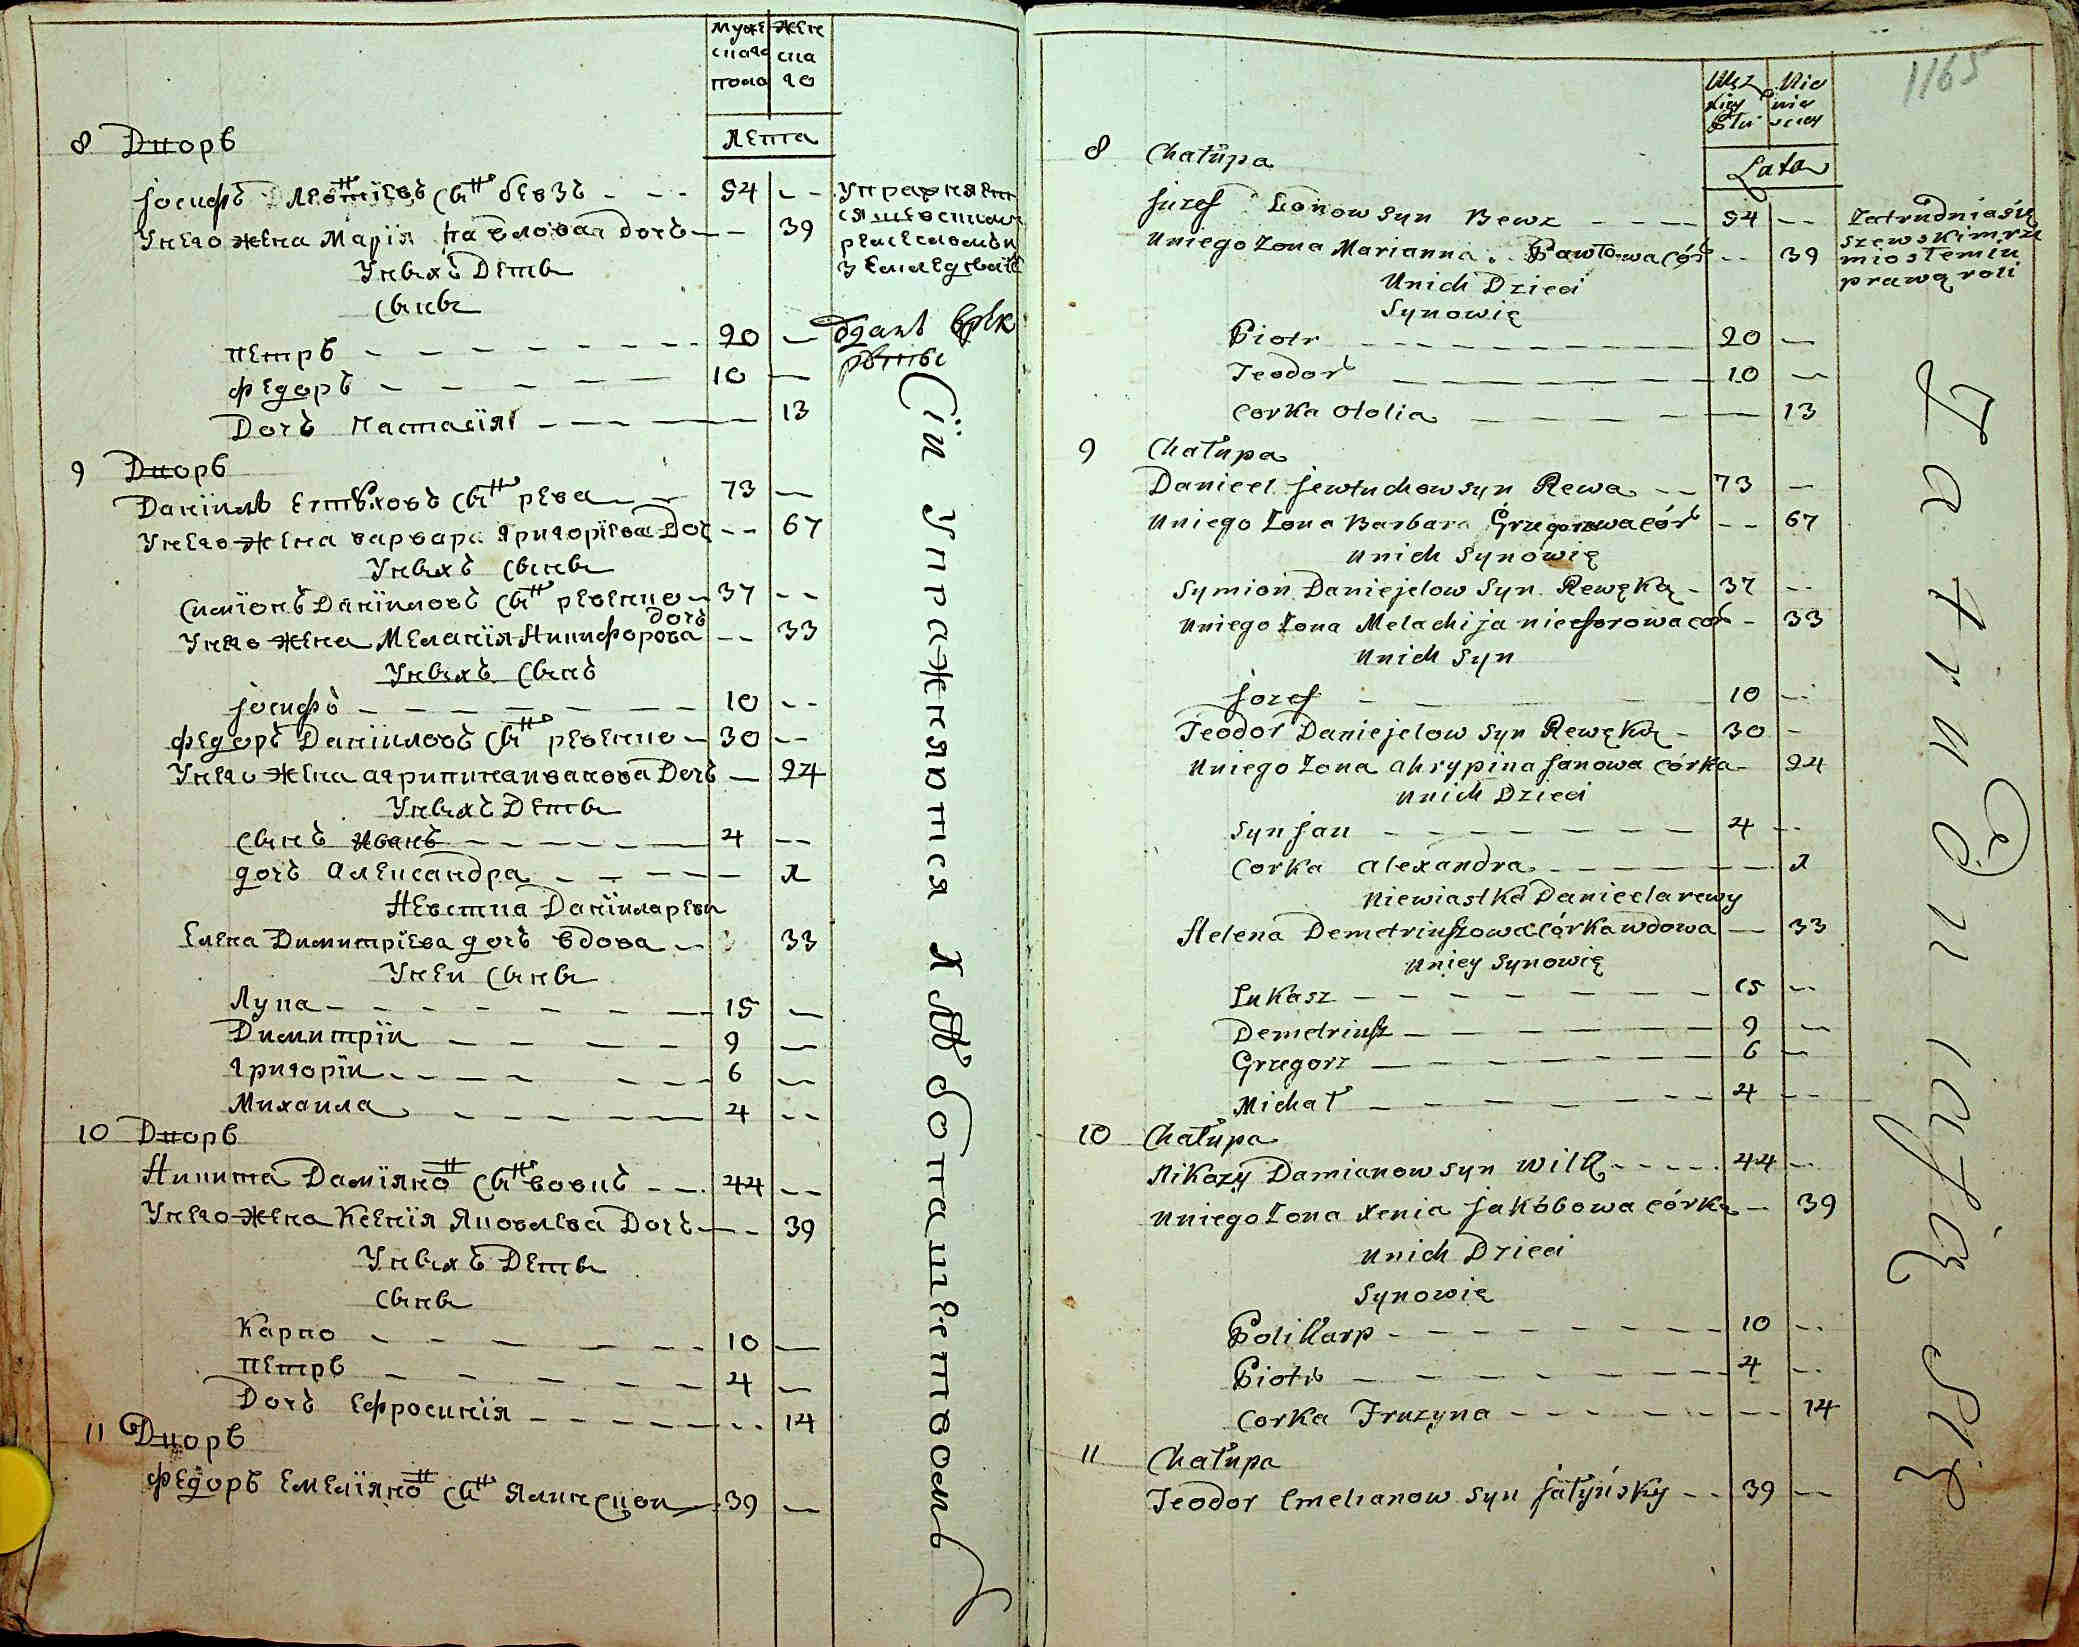 Муже Жен
скаго ска
пола го
Лѣта
8 Дворъ
Іосифъ Леонтіевъ сынъ бевзъ - - - 54 - -
Унего жена Марія Павлова дочь - - 39
Унихъ Дети
Сыны
Петръ - - - - - - - 20 -
Федоръ - - - - - 10 -
Дочь Настасія - - - - - 13
9 Дворъ
Даніилъ Евтѣховъ сынъ рева - - 73 -
Унего жена варвара Григоріева Доч - - 67
Унихъ Сыны
Симіонъ Даніиловъ сынъ ревенко - 37 - -
Унего жена Меланія Никифорова дочь - - 33
Унихъ Сынъ
Іосифъ - - - - - - - 10 - -
Федоръ Даніиловъ сынъ ревенко - 30 - -
Унего жена агрипина Иванова Дочь - 24
Унихъ Дети
Сынъ Иванъ - - - - - 4 - -
дочь Александра - - - - - 1
Невѣстка Даніила ревы
Елена Димитріева дочь вдова - - 33
Унеи Сыны
Лука - - - - - - - 15 -
Димитрій - - - - - 9 -
Григорій - - - - - - - 6 -
Михаила - - - - - 4 - -
10 Дворъ
Никита Даміяновъ сынъ вовкъ - - - 44 - -
Унего жена Ксенія Яковлева Дочь - - - 39
Унихъ Дети
Сыны
Карпо - - - - - - - 10 -
Петръ - - - - - - - 4 -
Дочь Ефросинія - - - - - - - 14
11 Дворъ
Федоръ Емеліяновъ сынъ Ялинскои - 39 -
Упражняет
ся шевскимъ
ремесломъ и
земледеліе
Сіи упражняются хлѣбопашествомъ
1165
Męz Nie
kiey
Płci
Lata
8 Chałupa
Juzef Lonow Syn Bewz - - - - 54 - -
Uniego Zona Marianna Pawłowa Cór - - 39
Unich Dzieci
Synowię
Piotr - - - - - - - - 20 -
Teodor - - - - - - - 10 -
Corka Ololia - - - - - 13
Zatrudniasię
szewskim rze
miosłem iu
prawą roli
9 Chałupa
Danieel Jewtuchow Syn Rewa - - 73 -
Uniego Zona Barbara Grzegorzowa cór - - 67
Unich Synowię
Symion Daniejelow Syn Rewęką - 37 - -
Uniego Zona Melachija niceforowa cor - 33
Unich Syn
Jozef - - - - - - 10 - -
Teodor Daniejelow Syn Rewęką - 30 -
Uniego Zona ahrypina Janowa córka - 24
Unich Dzieci
Syn Jan - - - - - - - 4 - -
Corka alexandra - - - - - - - 1
Niewiastka Danieela rewy
Helena Demetriuszowa córka wdowa - 33
Uniey Synowię
Łukasz - - - - - - - - 15 - -
Demetriusz - - - - - - 9 -
Grzegorz - - - - - - - 6 -
Michał - - - - - - - - 4 - -
10 Chałupa
Nikazy Damianow Syn Wilk - - - - - 44 - -
Uniego Zona Xenia Jakóbowa córka - 39
Unich Dzieci
Synowię
Polikarp - - - - - - - - 10 - -
Piotr - - - - - - - - 4 - -
Corka Fruzyna - - - - - - - - 14
11 Chałupa
Teodor Emelianow Syn Jałyńsky - - 39 - -
Zatrudniaią się